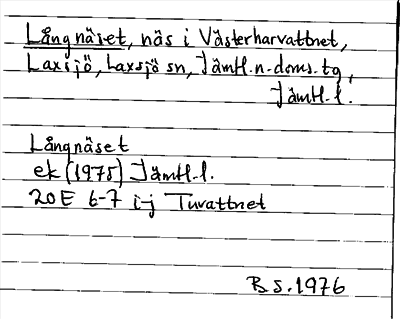 Långnäset, näs i Västerharvattnet,
Laxsjö, Laxsjö sn, Jämtl.n.doms.tg,
Jämtl.l.
Långnäset
ek (1975) Jämtl.l.
20E 6-7 i-j Tuvattnet
B S. 1976